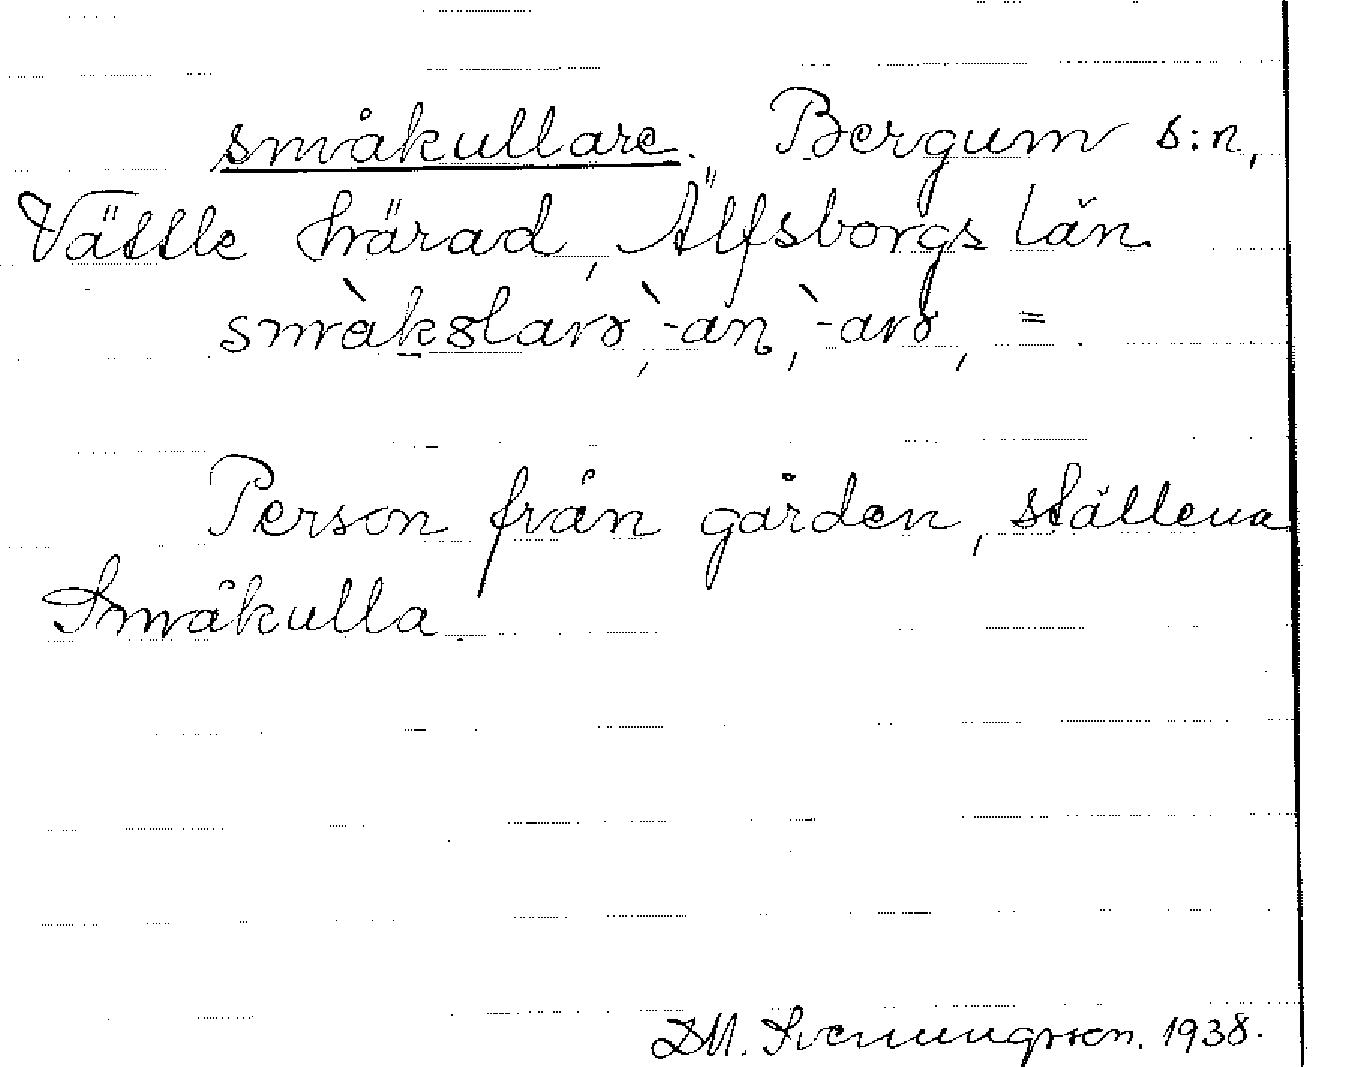 småkullare. Bergum s:n,
Vättle härad, Älfsborgs län.
småkɷlarə, -an, -arə, =
Person från gården, ställena
Småkulla.
D.M. Svenungsson. 1938.